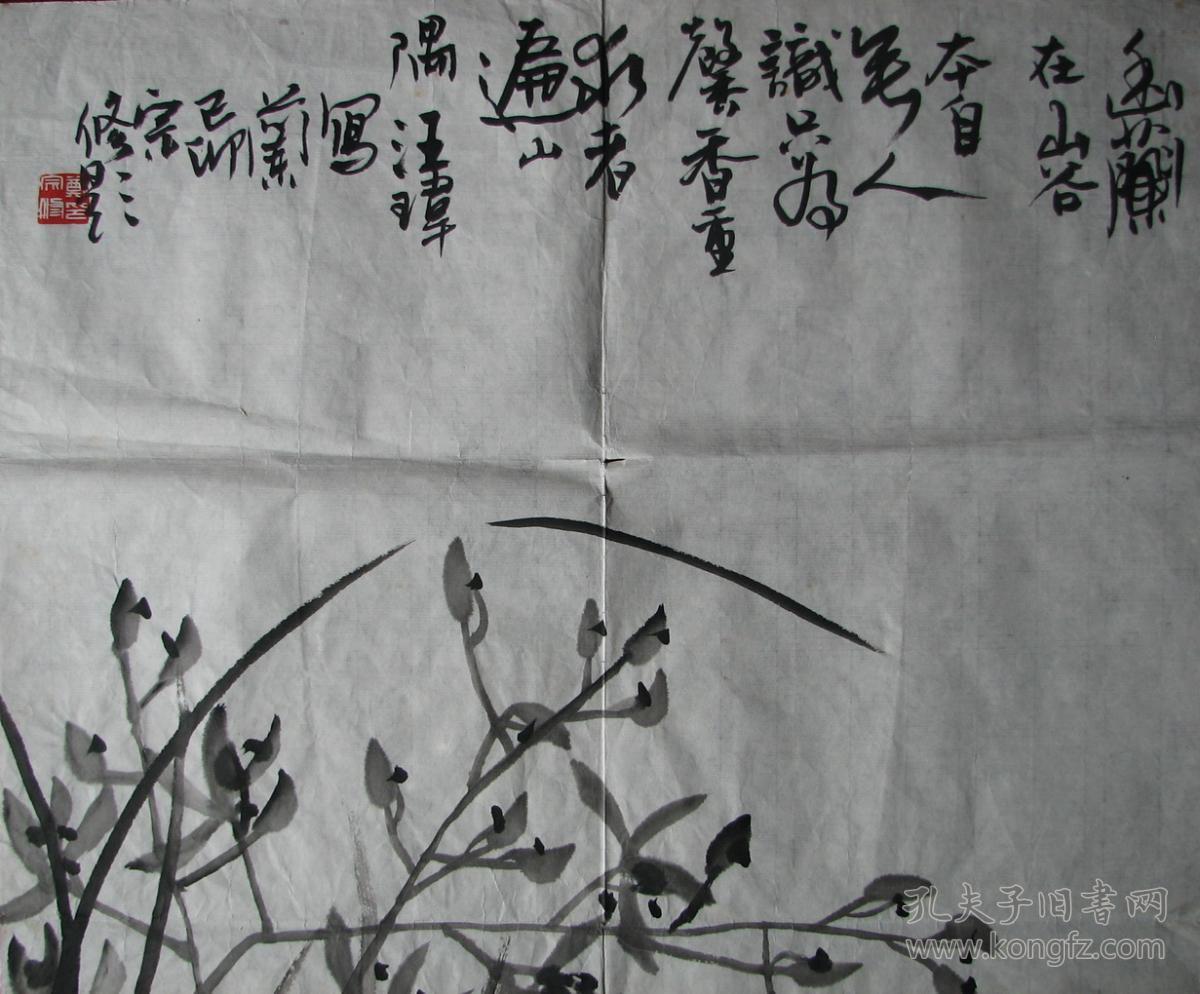 幽蘭
在山谷
本自
無人
識只為
馨香重
求者
遍山
隅 汪瑋
寫
蘭
己卯
宗
修題
孔夫子旧书网
www.kongfz.com